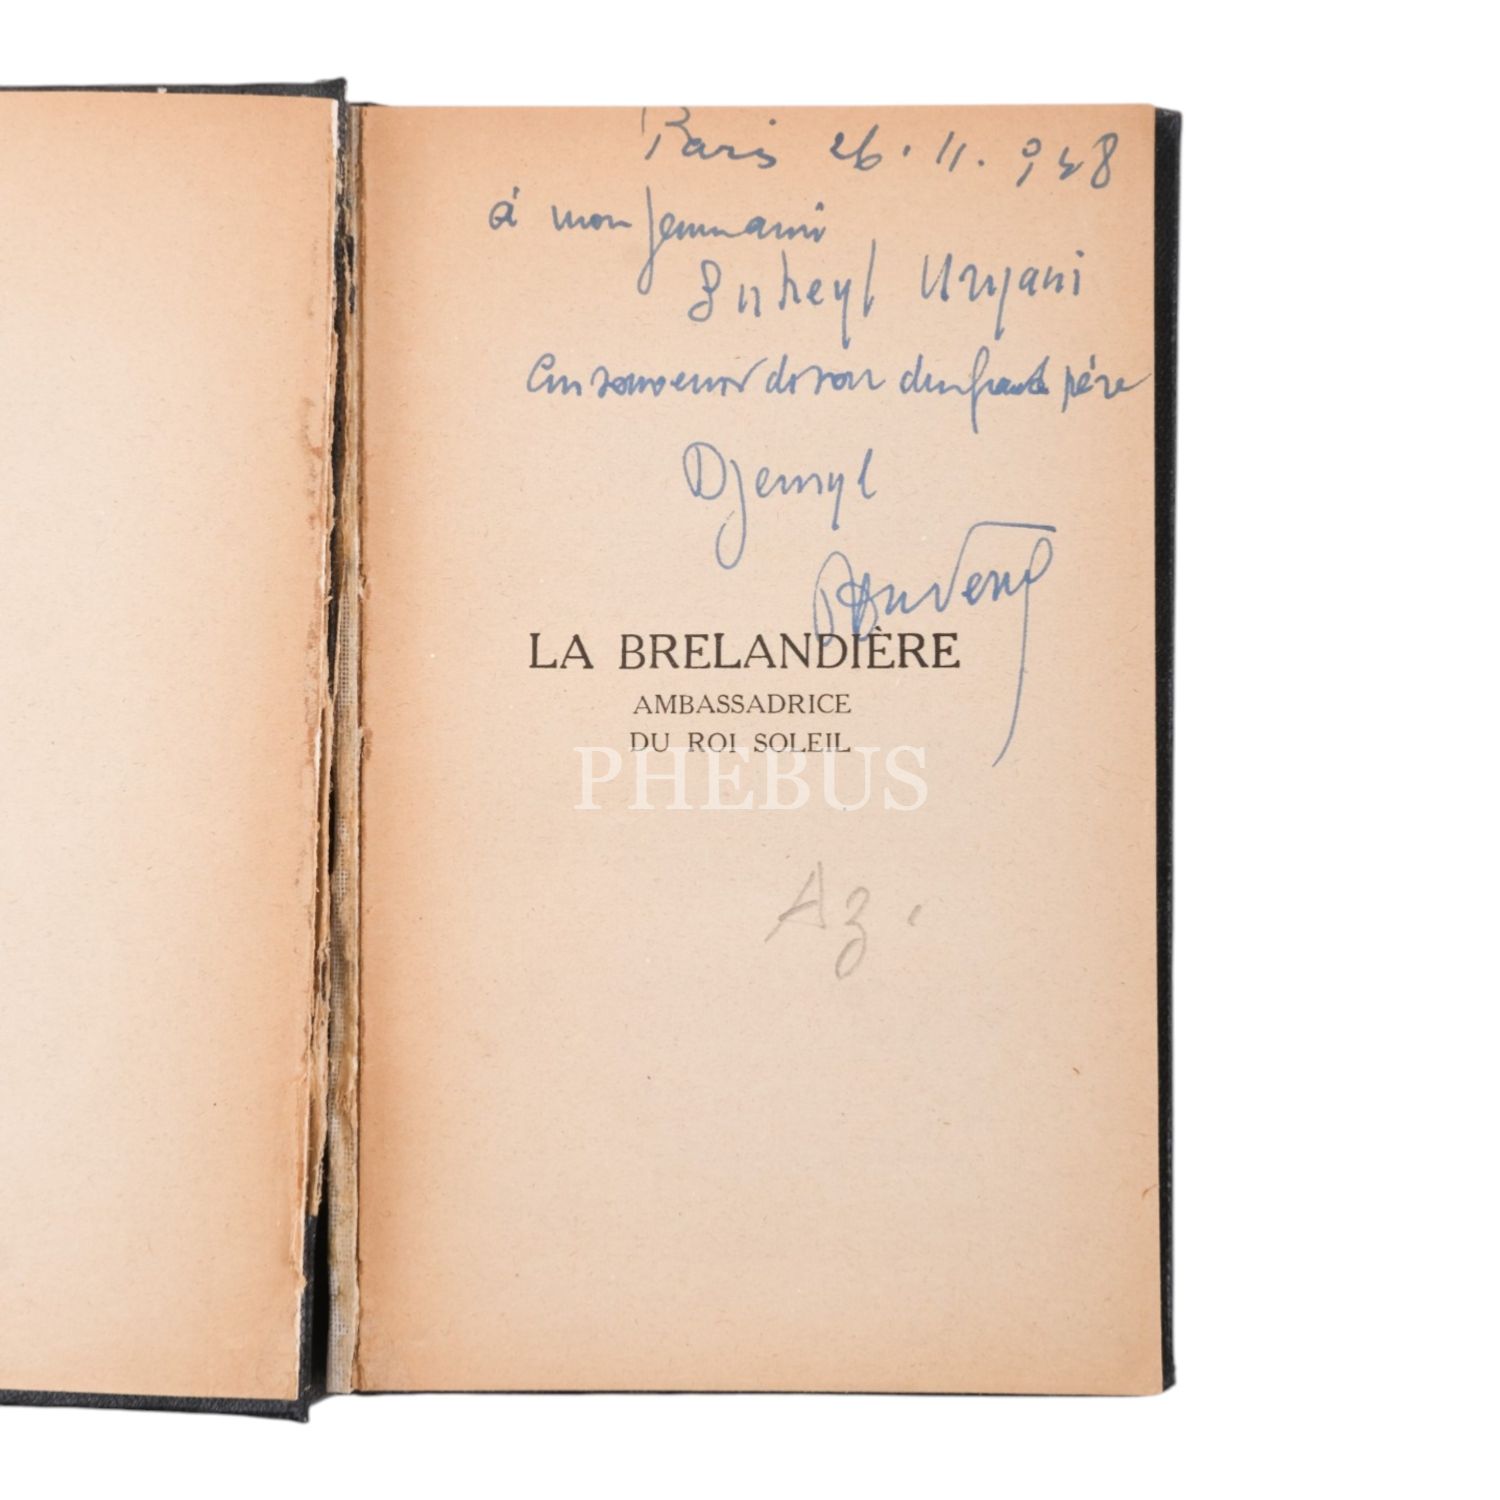 Paris 26.11.948
à mon jeune ami
Suheyl Unyani
En souvenir de son du grand père
Djemyl
LA BRELANDIÈRE
AMBASSADRICE
DU ROI SOLEIL
PHEBUS
Az.